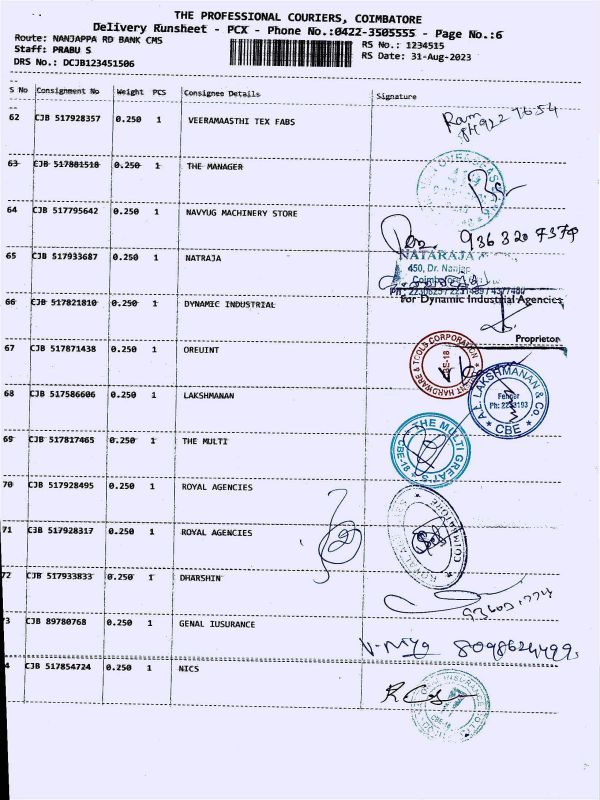 THE PROFESSIONAL COURIERS, COIMBATORE
Delivery Runsheet - PCX - Phone No.:0422-3505555 - Page No.:6
Route: NANJAPPA RD BANK CMS
RS No.: 1234515
Staff: PRABU S
RS Date: 31-Aug-2023
DRS No.: DCJB123451506
S No Consignment No Weight PCS Consignee Details Signature
62 CJB 517928357 0.250 1 VEERAMAASTHI TEX FABS
Ram
63 CJB 517881518 0.250 1 THE MANAGER
64 CJB 517795642 0.250 1 NAVYUG MACHINERY STORE
936320 7379
65 CJB 517933687 0.250 1 NATRAJA
NATARAJA
450, Dr. Nanjap
66 CJB 517821810 0.250 1 DYNAMIC INDUSTRIAL
For Dynamic Industrial Agencies
Proprietor
67 CJB 517871438 0.250 1 OREUINT
HARDWARE & TOOLS CORPORATION
CBE-18
68 CJB 517586606 0.250 1 LAKSHMANAN
A.L. LAKSHMANAN & CO.
Fenner
CBE
69 CJB 517817465 0.250 1 THE MULTI
THE MULTI GREAT'S
CBE-18
70 CJB 517928495 0.250 1 ROYAL AGENCIES
ROYAL AGENCIES
COIMBATORE
71 CJB 517928317 0.250 1 ROYAL AGENCIES
72 CJB 517933833 0.250 1 DHARSHIN
73 CJB 89780768 0.250 1 GENAL IUSURANCE
8098624499
4 CJB 517854724 0.250 1 NICS
INSURANCE CO LTD
CBE-18